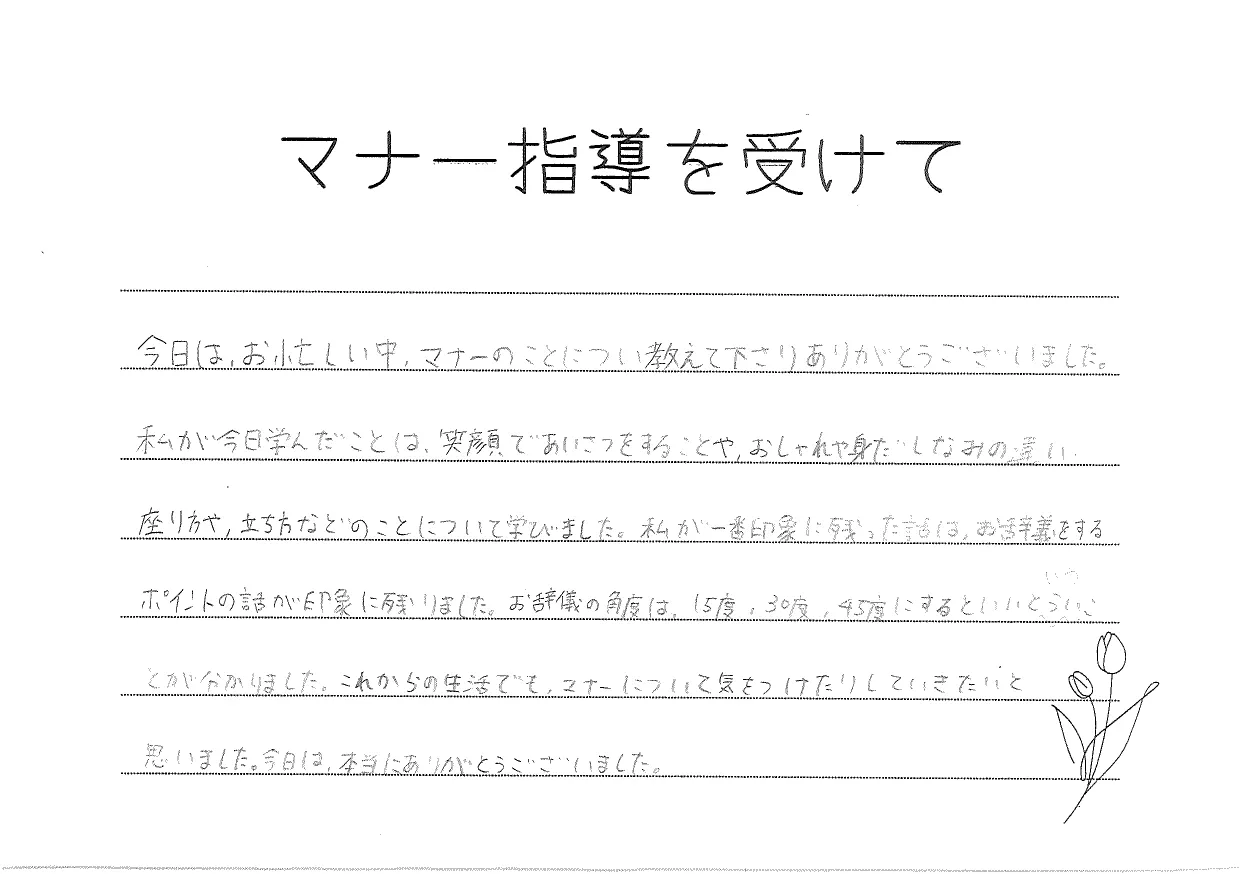 マナー指導を受けて
今日は,お忙しい中,マナーのことについ教えて下さりありがとうございました。
私が今日学んだことは、笑顔であいさつをすることや,おしゃれや身だしなみの違い
座り方や,立ち方などのことについて学びました。私が一番印象に残った話は,お辞義をする
ポイントの話が印象に残りました。お辞儀の角度は、15度,30度,45度にするといいとういこ
とが分かりました。これからの生活でも,マナーについて気をつけたりしていきたいと
思いました。今日は,本当にありがとうございました。